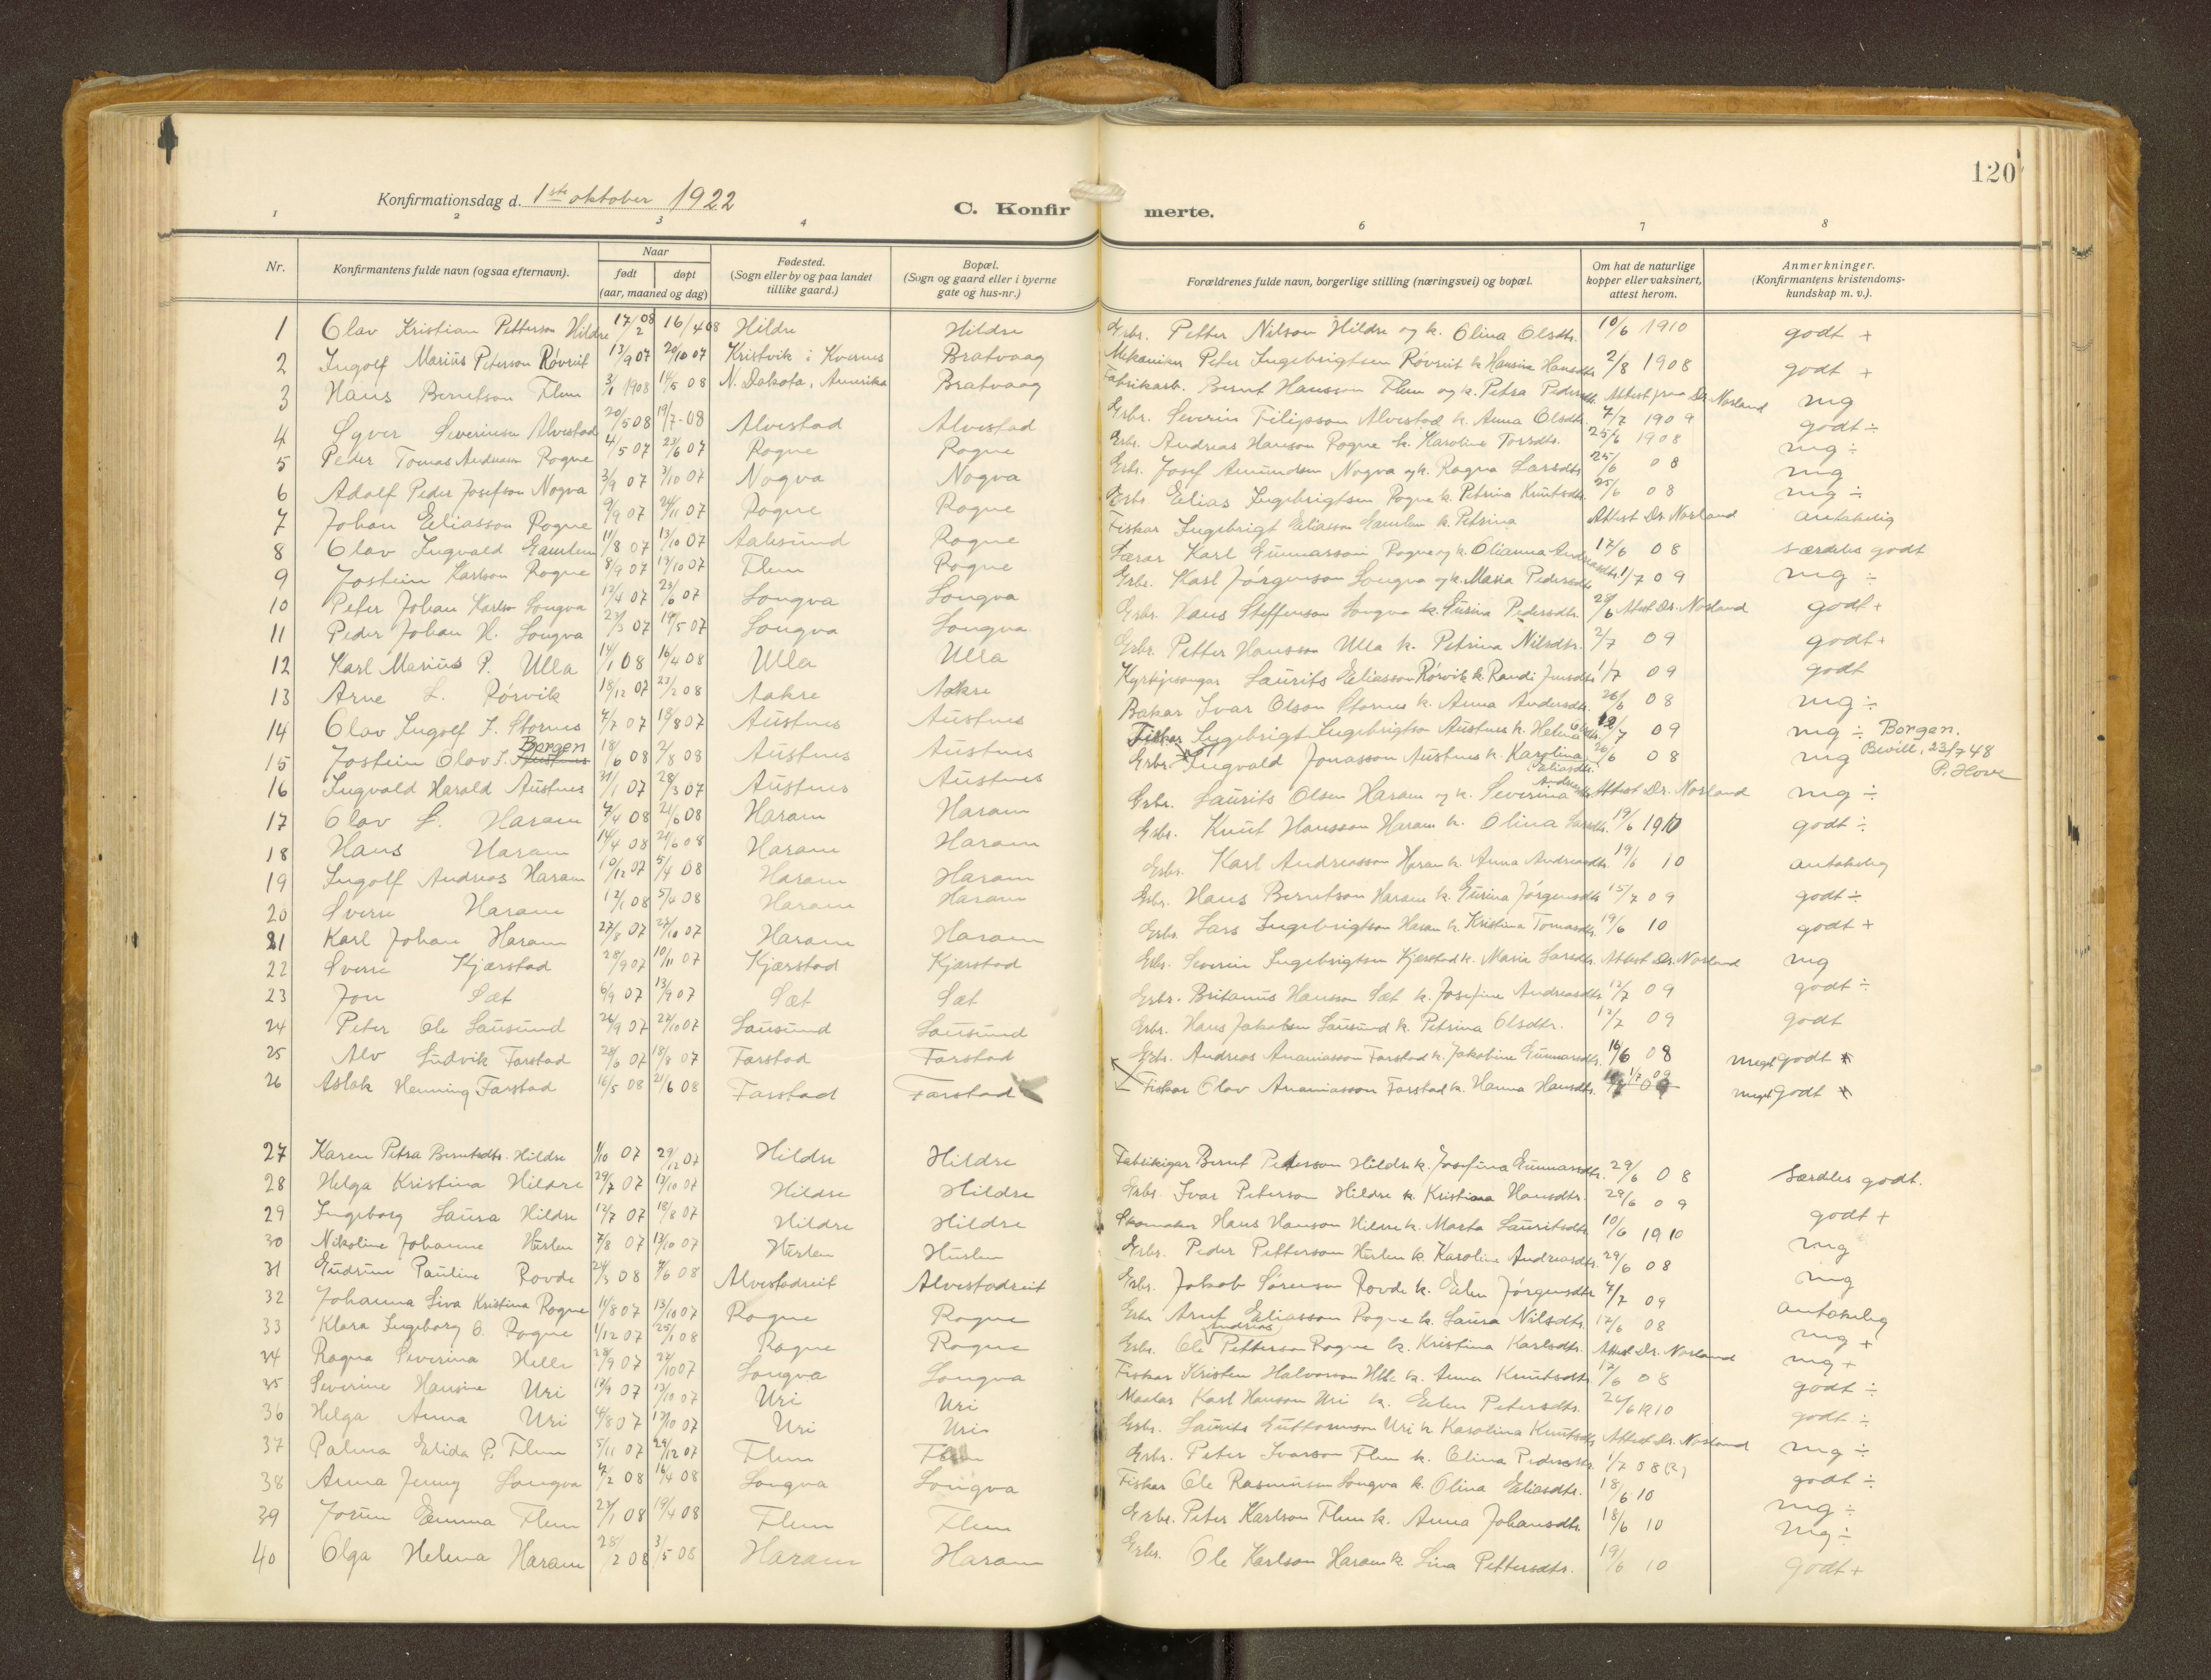 120
Konfirmationsdag d. 1ste oktober 1922
C. Konfirmerte.
1 2 3 4 6 7 8
Nr. Konfirmantens fulde navn (ogsaa efternavn). Naar født døpt (aar, maaned og dag) Fødested. (Sogn eller by og paa landet tillike gaard.) Bopæl. (Sogn og gaard eller i byerne gate og hus-nr.) Forældrenes fulde navn, borgerlige stilling (næringsvei) og bopæl. Om hat de naturlige kopper eller vaksinert, attest herom. Anmerkninger. (Konfirmantens kristendoms-kundskap m. v.).
1 Olav Kristian Petterson Hildre 17/2 08 16/4 08 Hildre Hildre Grbr. Petter Nilson Hildre og k. Olina Olsdtr. 10/6 1910 godt +
2 Ingolf Marius Peterson Røvreit 13/9 07 20/10 07 Kristvik i Kvernes Bratvaag Mekaniker Peter Ingebrigtsen Røvreit k. Hansine Hansdtr. 2/8 1908 godt +
3 Hans Berntson Flem 3/1 1908 14/5 08 N. Dakota, Amerika Bratvaag Fabrikarb. Bernt Hansson Flem og k. Petra Pedersdtr. Attest fraa Dr. Norland mg
4 Syver Severinsen Alvestad 20/5 08 19/7-08 Alvestad Alvestad Grbr. Severin Filipson Alvestad k. Anna Olsdtr. 7/7 1909 godt ÷
5 Peder Tomas Andreasen Rogne 4/5 07 23/6 07 Rogne Rogne Grbr. Andreas Hanson Rogne k. Karoline Torsdtr. 25/6 1908 mg ÷
6 Adolf Peder Josefson Nogva 3/9 07 3/10 07 Nogva Nogva Grbr. Josef Amundsen Nogva og k. Ragna Larsdtr. 25/6 08 mg
7 Johan Eliasson Rogne 2/9 07 24/11 07 Rogne Rogne Grbr. Elias Ingebrigtsen Rogne k. Petrina Knutsdtr. 25/6 08 mg ÷
8 Olav Ingvald Gamlem 11/8 07 13/10 07 Aalesund Rogne Fiskar Ingebrigt Eliasson Gamlem k. Petrina Attest Dr. Norland antakelig
9 Jostein Karlson Rogne 8/9 07 13/10 07 Flem Rogne Lærar Karl Gunnarsson Rogne og k. Olianna Andreasdtr. 17/6 08 særdeles godt
10 Peter Johan Karlson Longva 12/4 07 23/6 07 Longva Longva Grbr. Karl Jørgenson Longva og k. Maria Pedersdtr. 1/7 09 mg ÷
11 Peder Johan H. Longva 27/3 07 19/5 07 Longva Longva Grbr. Hans Steffenson Longva k. Gurina Pedersdtr. 28/6 Attest Dr. Norland godt +
12 Karl Marius P. Ulla 14/1 08 16/4 08 Ulla Ulla Grbr. Petter Hansson Ulla k. Petrina Nilsdtr. 2/7 09 godt +
13 Arne L. Rørvik 18/12 07 23/2 08 Aakre Aakre Kyrkjesongar Laurits Eliasson Rørvik k. Randi Jensdtr. 1/7 09 godt
14 Olav Ingolf I. Stornes 4/7 07 18/8 07 Austnes Austnes Bakar Ivar Olson Stornes k. Anna Andersdtr. 26/6 08 mg ÷
15 Jostein Olav I. Austnes Borgen 18/6 08 2/8 08 Austnes Austnes Fiskar Ingebrigt Ingebrigtson Austnes k. Helena Olsdtr. 12/7 09 mg ÷ Borgen. Bevill. 23/7 48 P. Hove
16 Ingvald Harald Austnes 31/1 07 28/3 07 Austnes Austnes Grbr. Ingvald Jonasson Austnes k. Karolina Eliasdtr. 26/6 08 mg
17 Olav L. Haram 7/4 08 21/6 08 Haram Haram Grbr. Laurits Olsen Haram og k. Severina Andreasdtr. Attest Dr. Norland mg ÷
18 Hans Haram 14/4 08 21/6 08 Haram Haram Grbr. Knut Hansson Haram k. Olina Larsdtr. 19/6 1910 godt ÷
19 Ingolf Andreas Haram 10/12 07 5/4 08 Haram Haram Grbr. Karl Andreasson Haram k. Anna Andreasdtr. 19/6 10 antakelig
20 Sverre Haram 12/1 08 5/4 08 Haram Haram Grbr. Hans Berntson Haram k. Gurina Jørgensdtr. 15/7 09 godt ÷
21 Karl Johan Haram 27/8 07 27/10 07 Haram Haram Grbr. Lars Ingebrigtson Haram k. Kristina Tomasdtr. 19/6 10 godt +
22 Sverre Kjærstad 28/9 07 10/11 07 Kjærstad Kjærstad Grbr. Severin Ingebrigtsen Kjærstad k. Marie Larsdtr. Attest Dr. Norland mg
23 Jon Sæt 6/9 07 13/9 07 Sæt Sæt Grbr. Britanus Hansson Sæt k. Josefine Andreasdtr. 12/7 09 godt ÷
24 Peter Ole Lausund 26/9 07 27/10 07 Lausund Lausund Grbr. Hans Jakobsen Lausund k. Petrina Olsdtr. 12/7 09 godt
25 Alv Ludvik Farstad 28/6 07 18/8 07 Farstad Farstad Grbr. Andreas Ananiasson Farstad k. Jakobine Gunnarsdtr. 16/6 08 meget godt
26 Aslak Henning Farstad 16/5 08 21/6 08 Farstad Farstad Fiskar Olav Ananiasson Farstad k. Hanna Hansdtr. 1/7 09 meget godt
27 Karen Petra Berntsdtr. Hildre 1/10 07 29/12 07 Hildre Hildre Fabrikeigar Bernt Pederson Hildre k. Josefina Gunnarsdtr. 29/6 08 Særdeles godt.
28 Helga Kristina Hildre 29/7 07 13/10 07 Hildre Hildre Grbr. Ivar Peterson Hildre k. Kristiana Hansdtr. 29/6 09 godt +
29 Ingeborg Laura Hildre 12/7 07 18/8 07 Hildre Hildre Skomaker Hans Hanson Hildre k. Marta Lauritsdtr. 10/6 1910 mg
30 Nikoline Johanne Hurlen 7/8 07 13/10 07 Hurlen Hurlen Grbr. Peder Petterson Hurlen k. Karoline Andreasdtr. 29/6 08 mg
31 Gudrun Pauline Rovde 24/3 08 7/6 08 Alvestadreit Alvestadreit Grbr. Jakob Sørensen Rovde k. Elen Jørgensdtr. 7/7 09 antakelig
32 Johanna Siva Kristina Rogne 11/8 07 13/10 07 Rogne Rogne Grbr. Arnt Eliasson Rogne k. Laura Nilsdtr. 17/6 08 mg +
33 Klara Ingeborg O. Rogne 1/12 07 25/1 08 Rogne Rogne Grbr. Ole Andreas Petterson Rogne k. Kristina Karlsdtr. Attest Dr. Norland mg +
34 Ragna Severina Helle 28/9 07 27/10 07 Longva Longva Fiskar Kristen Halvorson Helle k. Anna Knutsdtr. 17/6 08 godt ÷
35 Severine Hansine Uri 12/9 07 13/10 07 Uri Uri Maalar Karl Hanson Uri k. Elen Petersdtr. 26/6 1910 godt ÷
36 Helga Anna Uri 4/8 07 13/10 07 Uri Uri Grbr. Laurits Guttormson Uri k. Karolina Knutsdtr. Attest Dr. Norland mg ÷
37 Palma Elida P. Flem 5/11 07 29/12 07 Flem Flem Grbr. Peter Ivarson Flem k. Olina Pedersdtr. 1/7 08 (?) godt ÷
38 Anna Jenny Longva 7/2 08 16/4 08 Longva Longva Fiskar Ole Rasmusson Longva k. Olina Eliasdtr. 18/6 10 mg ÷
39 Jorun Emma Flem 27/1 08 19/4 08 Flem Flem Grbr. Peter Karlson Flem k. Anna Johansdtr. 18/6 10 mg ÷
40 Olga Helena Haram 28/2 08 3/5 08 Haram Haram Grbr. Ole Karlson Haram k. Lina Pettersdtr. 19/6 10 godt +